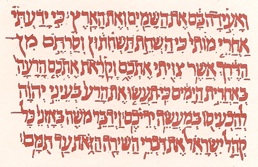 ואעידה בם את השמים ואת הארץ: כי ידעתי
אחרי מותי כי השחת תשחתון וסרתם מן
הדרך אשר צויתי אתכם וקראת אתכם הרעה
באחרית הימים כי תעשו את הרע בעיני יהוה
להכעיסו במעשה ידיכם: וידבר משה באזני כל
קהל ישראל את דברי השירה הזאת עד תמם: